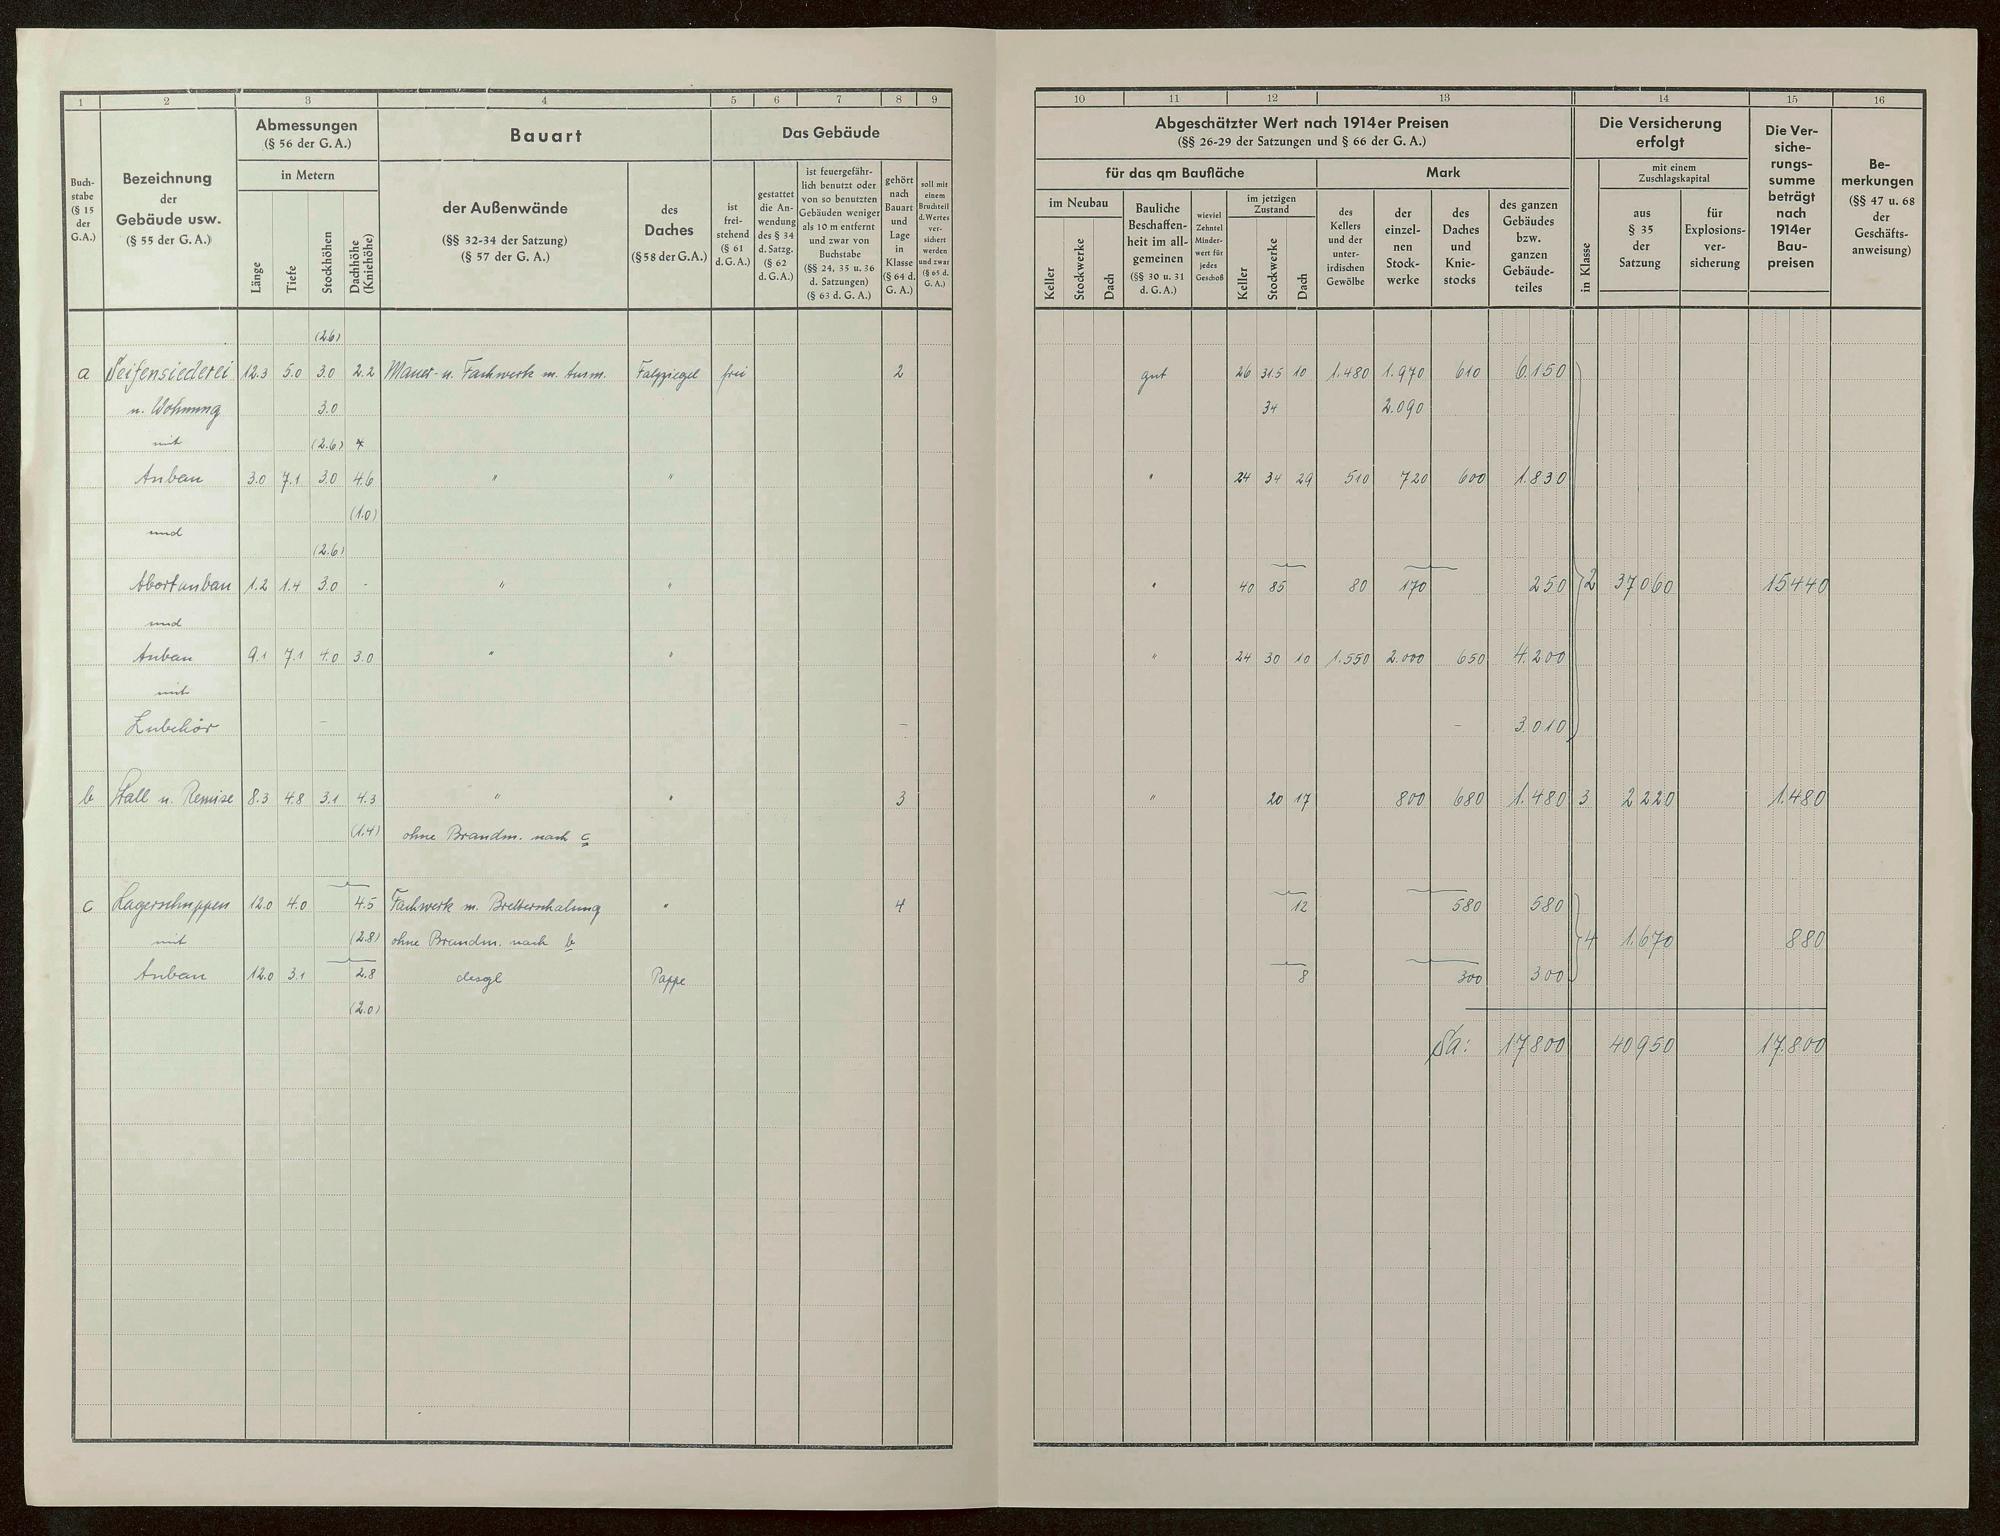 1 2 3 4 5 6 7 8 9
Buch-
stabe
(§ 15
der
G.A.)
Bezeichnung
der
Gebäude usw.
(§ 55 der G. A.)
Abmessungen
(§ 56 der G. A.)
in Metern
Länge
Tiefe
Stockhöhen
Dachhöhe
(Kniehöhe)
Bauart
der Außenwände
(§§ 32-34 der Satzung)
(§ 57 der G. A.)
des
Daches
(§ 58 der G. A.)
Das Gebäude
ist
frei-
stehend
(§ 61
d. G. A.)
gestattet
die An-
wendung
des § 34
d. Satzg.
(§ 62
d. G. A.)
ist feuergefähr-
lich benutzt oder
von so benutzten
Gebäuden weniger
als 10 m entfernt
und zwar von
Buchstabe
(§§ 24, 35 u. 36
d. Satzungen)
(§ 63 d. G. A.)
gehört
nach
Bauart
und
Lage
in
Klasse
(§ 64 d.
G. A.)
soll mit
einem
Bruchteil
d. Wertes
ver-
sichert
werden
und zwar
(§ 65 d.
G. A.)
10 11 12 13 14 15 16
Abgeschätzter Wert nach 1914er Preisen
(§§ 26-29 der Satzungen und § 66 der G. A.)
für das qm Baufläche
Mark
im Neubau
Keller
Stockwerke
Dach
Bauliche
Beschaffen-
heit im all-
gemeinen
(§§ 30 u. 31
d. G. A.)
wieviel
Zehntel
Minder-
wert für
jedes
Geschoß
im jetzigen
Zustand
Keller
Stockwerke
Dach
des
Kellers
und der
unter-
irdischen
Gewölbe
der
einzel-
nen
Stock-
werke
des
Daches
und
Knie-
stocks
des ganzen
Gebäudes
bzw.
ganzen
Gebäude-
teiles
Die Versicherung
erfolgt
in Klasse
mit einem
Zuschlagskapital
aus
§ 35
der
Satzung
für
Explosions-
ver-
sicherung
Die Ver-
siche-
rungs-
summe
beträgt
nach
1914er
Bau-
preisen
Be-
merkungen
(§§ 47 u. 68
der
Geschäfts-
anweisung)
(2.6)
a Seifensiederei 12.3 5.0 3.0 2.2 Mauer- u. Fachwerk m. Ausm. Falzziegel frei 2 gut 26 31.5 10 1.480 1.970 610 6.150
u. Wohnung 3.0 34 2.090
mit (2.6)
Anbau 3.0 7.1 3.0 4.6 " " " 24 34 29 510 720 600 1.830
(1.0)
und
(2.6)
Abortanbau 1.2 1.4 3.0 - " " " 40 85 80 170 250 2 37060 15440
und
Anbau 9.1 7.1 4.0 3.0 " " " 24 30 10 1.550 2.000 650 4.200
mit
Zubehör - - - 3.010
b Stall u. Remise 8.3 4.8 3.1 4.3 " " 3 " 20 17 800 680 1.480 3 2220 1.480
(1.4) ohne Brandm. nach c
c Lagerschuppen 12.0 4.0 4.5 Fachwerk m. Bretterschalung " 4 12 580 580
mit (2.8) ohne Brandm. nach b 4 1.670 880
Anbau 12.0 3.1 2.8 desgl Pappe 8 300 300
(2.0)
Sa: 17800 40950 17.800